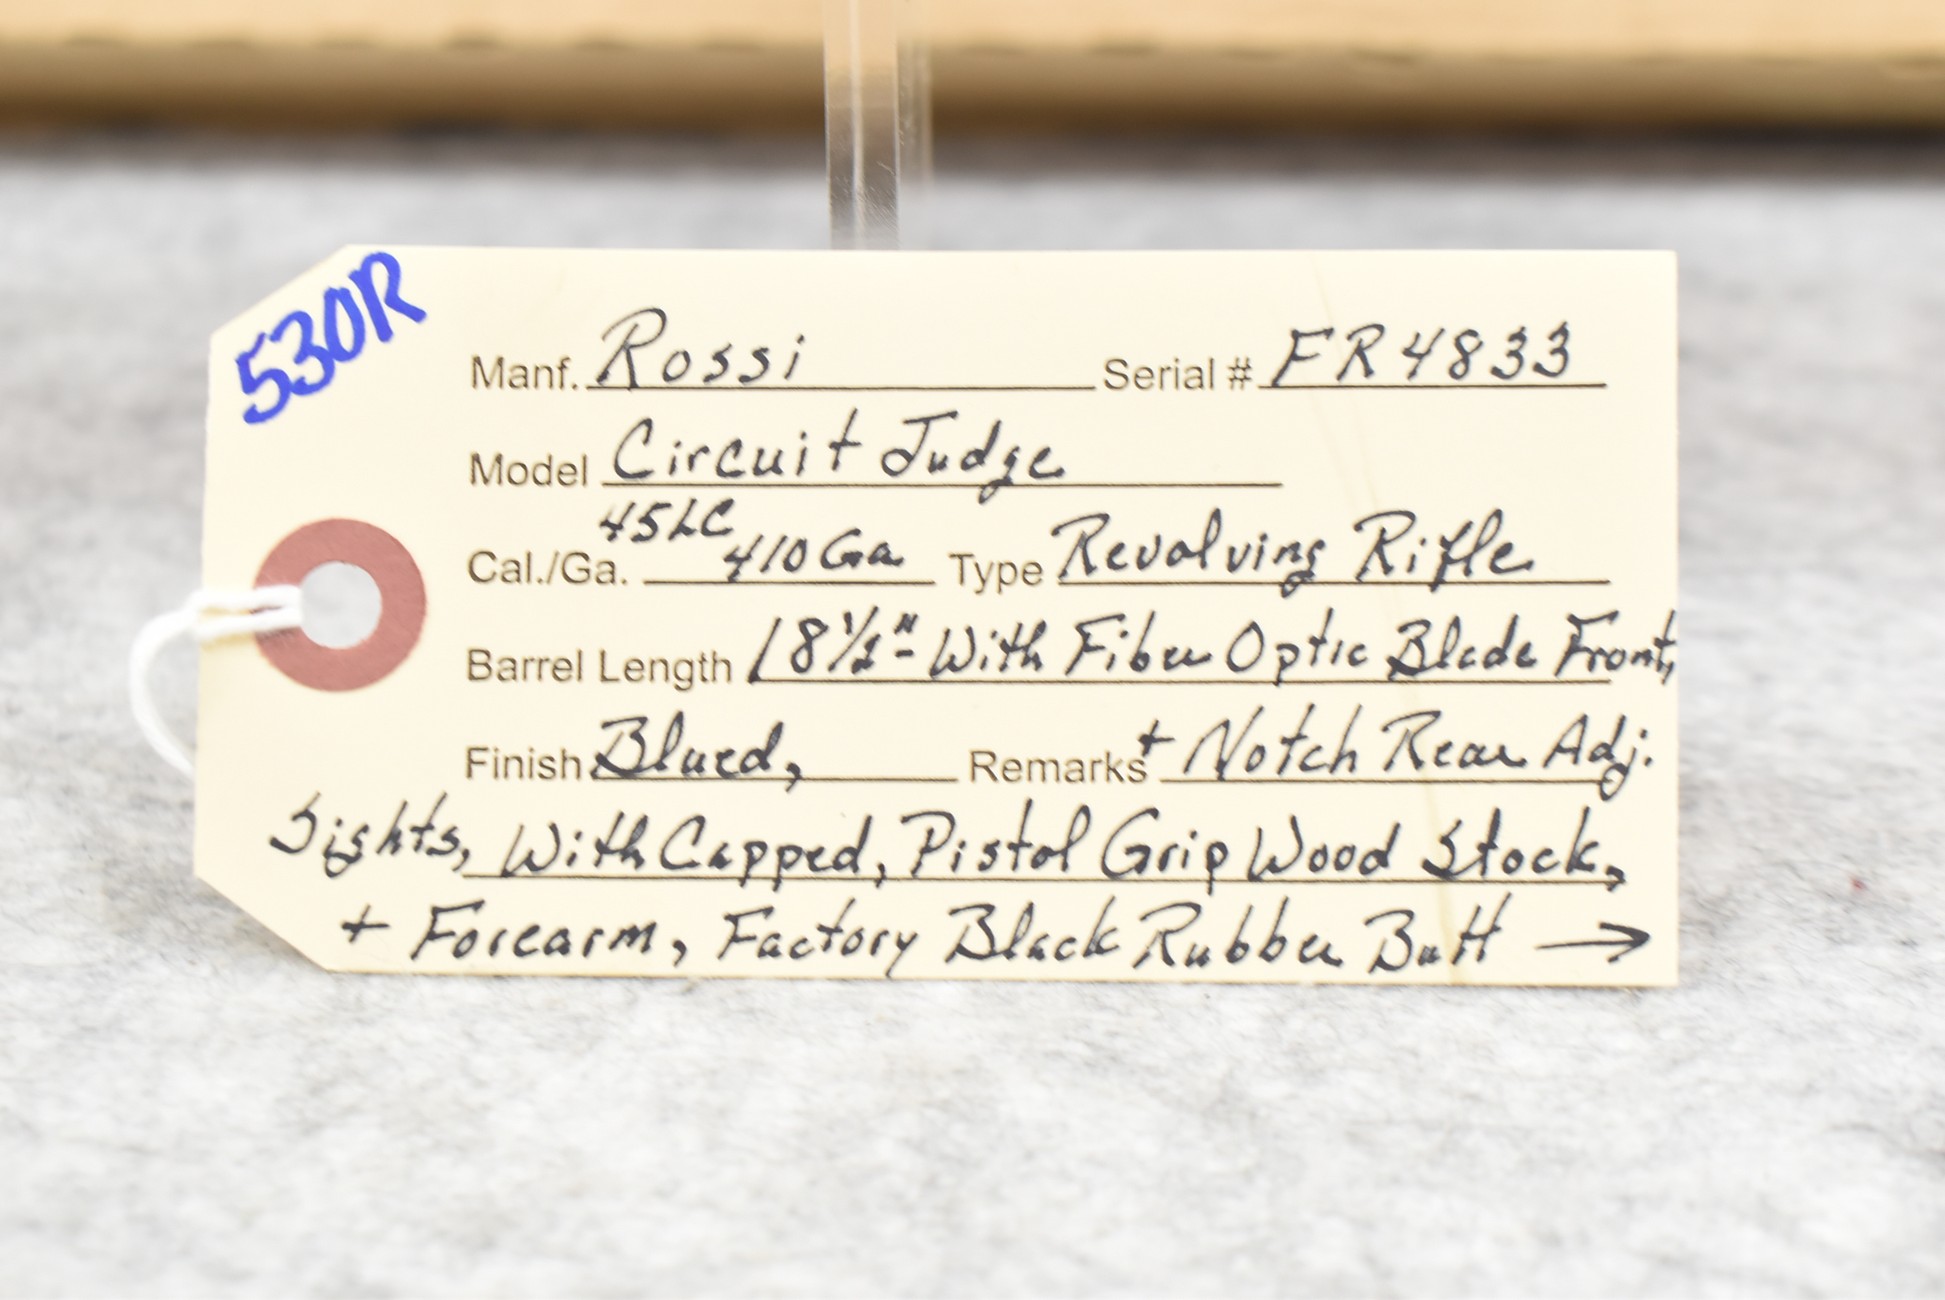 530R
Manf. Rossi Serial # FR4833
Model Circuit Judge
45LC
Cal./Ga. 410 Ga Type Revolving Rifle
Barrel Length 18 1/2" - With Fiber Optic Blade Front,
Finish Blued, Remarks + Notch Rear Adj.
Sights, With Capped, Pistol Grip Wood Stock,
+ Forearm, Factory Black Rubber Butt →